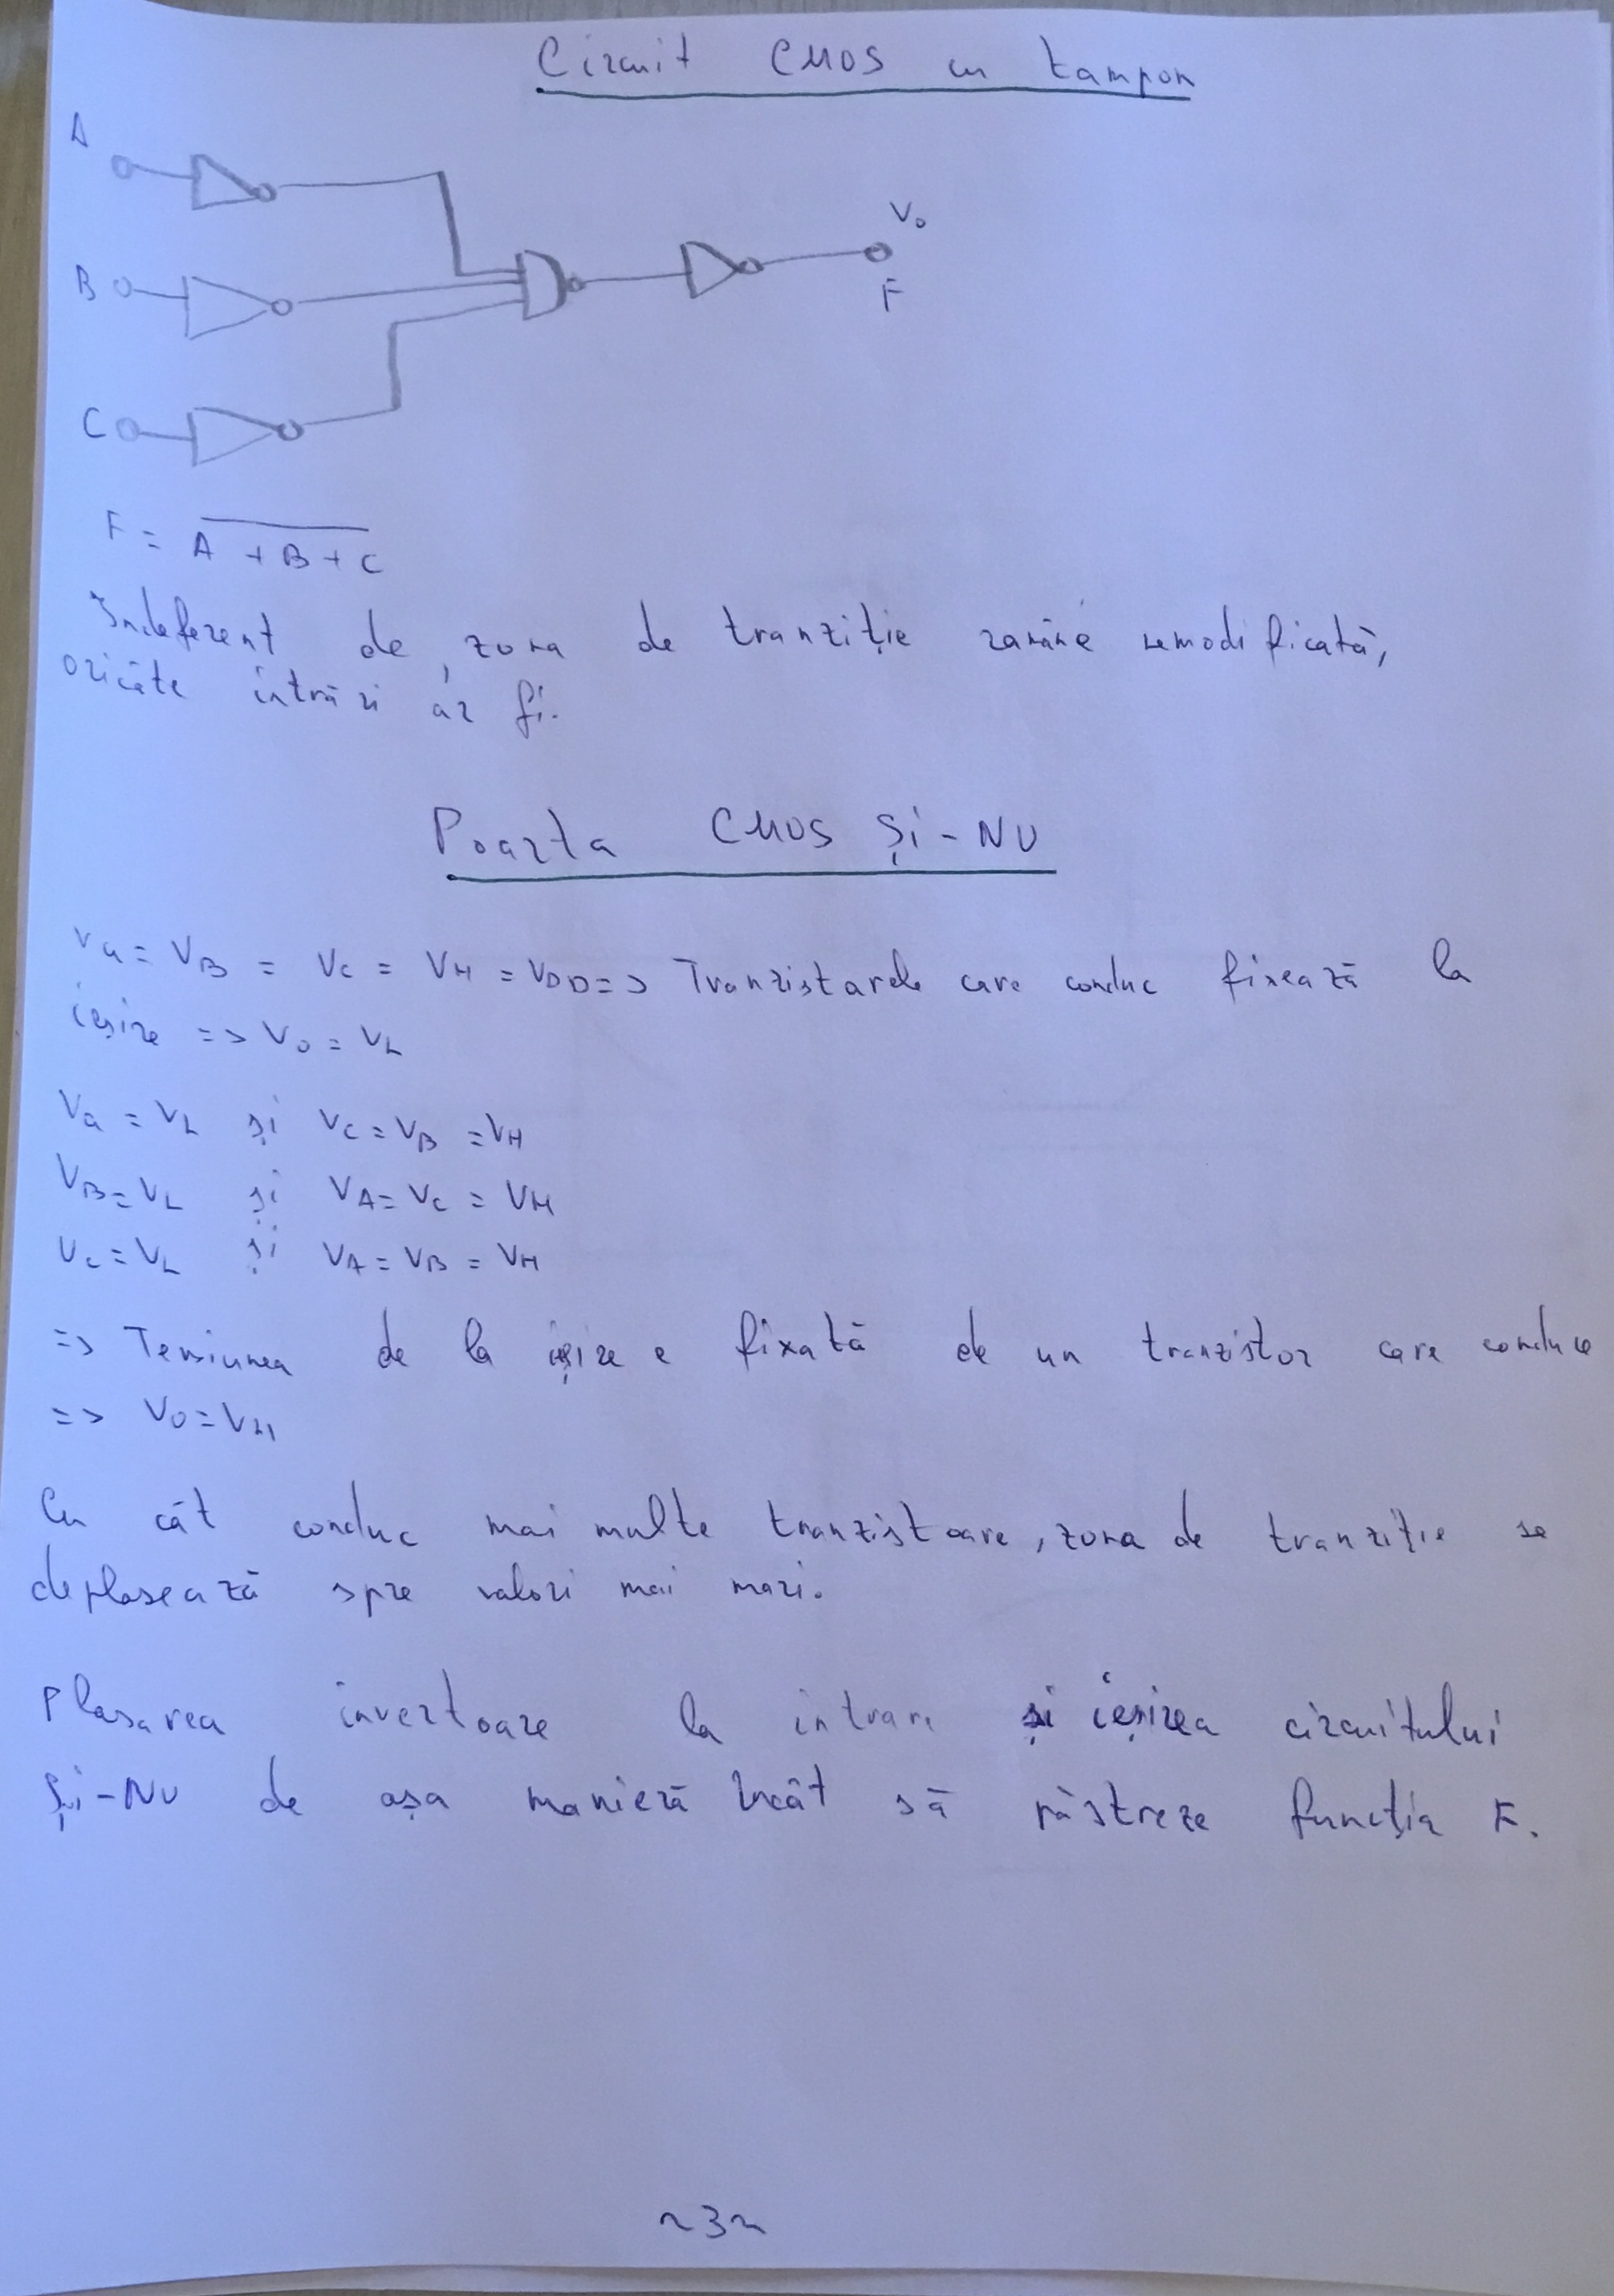 Circuit CMOS cu tampon
A
V₀
B
F
C
F = \overline{A + B + C}
Indeferent de, zona de tranziție rămâne nemodificată,
oricâte intrări ar fi.
Poarta CMOS Și-NU
Va = VB = VC = VH = VDD => Tranzistarele care conduc fixează la
ieșire => V₀ = VL
Va = VL și VC = VB = VH
VB = VL și VA = VC = VH
VC = VL și VA = VB = VH
=> Tensiunea de la ieșire e fixată de un tranzistor care conduce
=> V₀ = VH
Cu cât conduc mai multe tranzistoare, zona de tranziție se
deplasează spre valori mai mari.
Plasarea invertoare la intrare și ieșirea circuitului
Și-NU de așa manieră încât să păstreze funcția F.
~3~